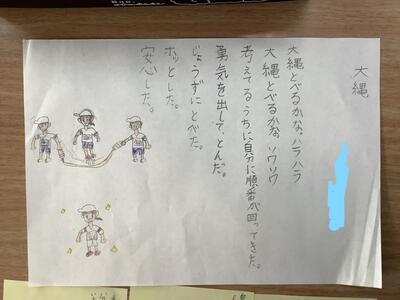 大縄
大縄とべるかな、ハラハラ
大縄とべるかな、ソワソワ
考えてるうちに自分に順番が回ってきた。
勇気を出して、とんだ。
じょうずにとべた。
ホッとした。
安心した。